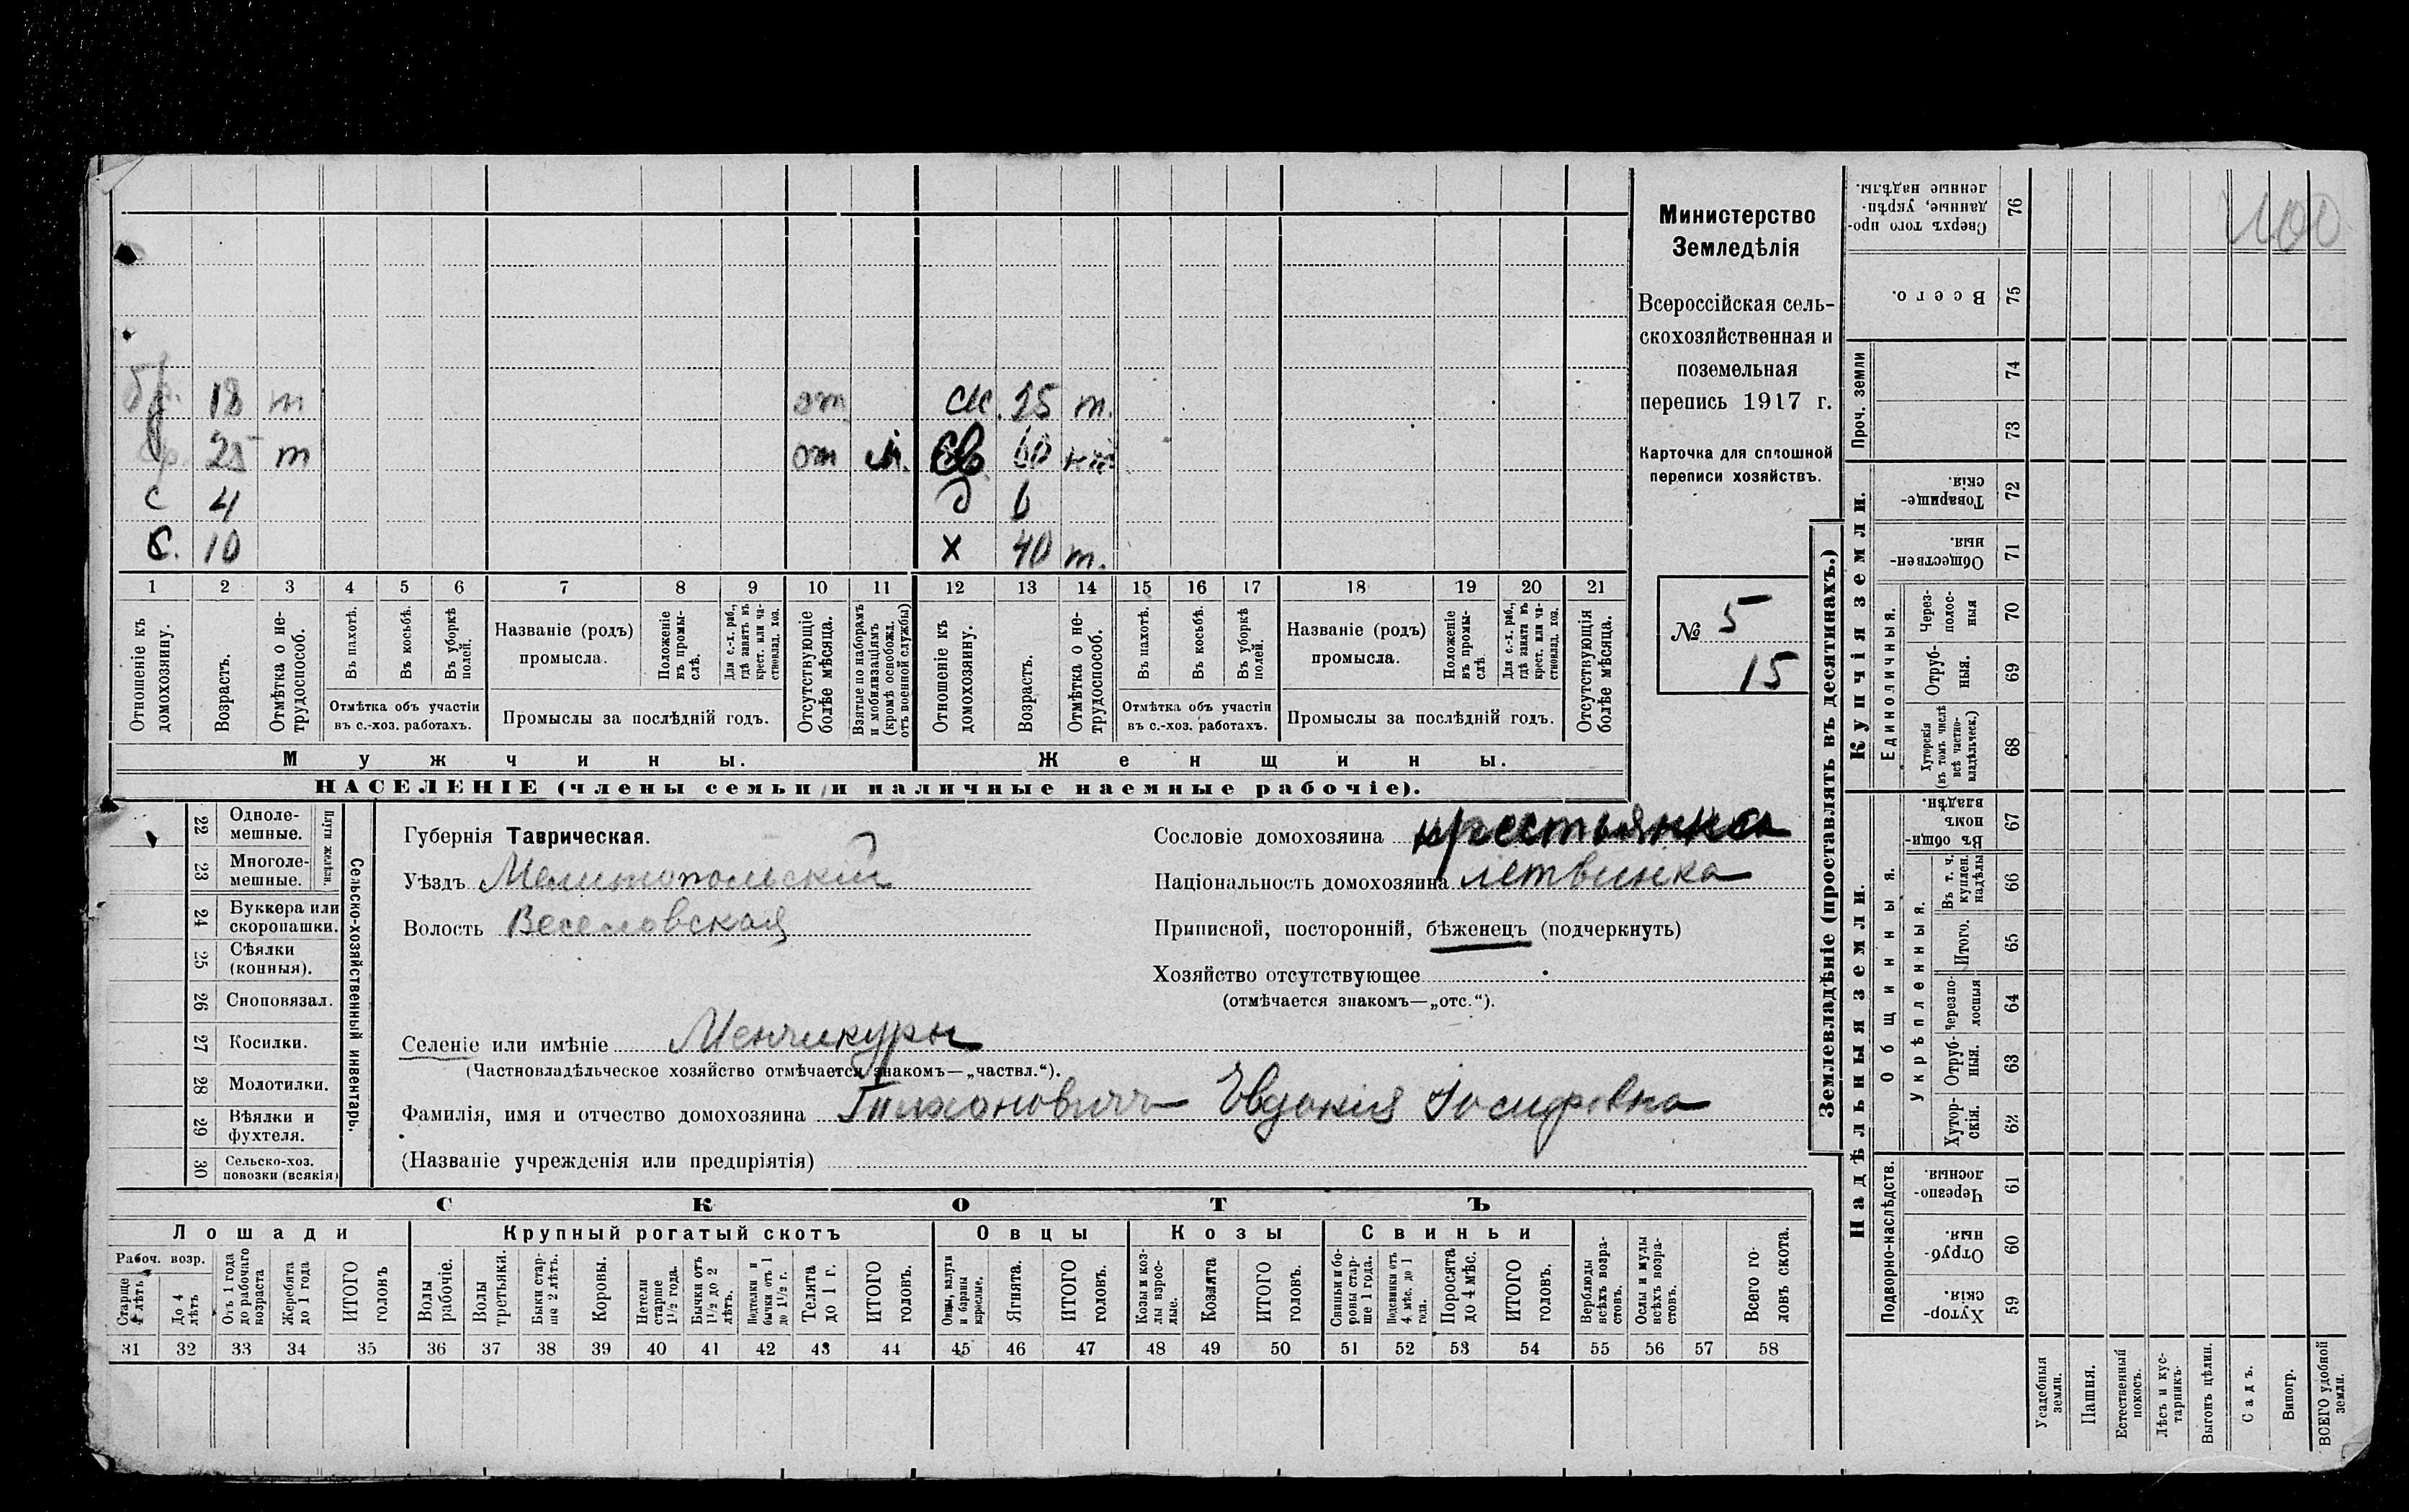 100
Министерство
Земледѣлія
Всероссійская сель-
скохозяйственная и
поземельная
перепись 1917 г.
Карточка для сплошной
переписи хозяйствъ.
№ 5
15
бр. 18 т от ж. 25 т.
бр. 25 т от м. 60
с 4 д 6
с. 10 х 40 т.
1 2 3 4 5 6 7 8 9 10 11 12 13 14 15 16 17 18 19 20 21
Отношеніе къ домохозяину.
Возрастъ.
Отмѣтка о не-трудоспособ.
Въ пахотѣ.
Въ косьбѣ.
Въ уборкѣ полей.
Отмѣтка объ участіи
въ с.-хоз. работахъ.
Названіе (родъ)
промысла.
Положеніе въ промы-слѣ.
Для с.-х. раб., гдѣ занятъ въ крест. или ча-стновлад. хоз.
Промыслы за послѣдній годъ.
Отсутствующіе болѣе мѣсяца.
Взятые по наборамъ и мобилизаціямъ (кромѣ освобожд. отъ военной службы)
Отношеніе къ домохозяину.
Возрастъ.
Отмѣтка о не-трудоспособ.
Въ пахотѣ.
Въ косьбѣ.
Въ уборкѣ полей.
Отмѣтка объ участіи
въ с.-хоз. работахъ.
Названіе (родъ)
промысла.
Положеніе въ промы-слѣ
Для с.-х. раб., гдѣ занята въ крест. или ча-стновлад. хоз.
Промыслы за послѣдній годъ.
Отсутствующія болѣе мѣсяца.
Мужчины.
Женщины.
НАСЕЛЕНІЕ (члены семьи и наличные наемные рабочіе).
Сельско-хозяйственный инвентарь.
Плуги желѣзн.
22 Одноле-мешные.
23 Многоле-мешные.
24 Буккера или скоропашки.
25 Сѣялки (конныя).
26 Сноповязал.
27 Косилки.
28 Молотилки.
29 Вѣялки и фухтеля.
30 Сельско-хоз. повозки (всякія)
Губернія Таврическая.
Уѣздъ Мелитопольскій
Волость Веселовская
Сословіе домохозяина крестьянка
Національность домохозяина летвинка
Приписной, посторонній, бѣженецъ (подчеркнуть)
Хозяйство отсутствующее
(отмѣчается знакомъ—„отс.“).
Селеніе или имѣніе Менчикуры
(Частновладѣльческое хозяйство отмѣчается знакомъ—„частвл.“).
Фамилія, имя и отчество домохозяина Тиханович Евдокія Іосифовна
(Названіе учрежденія или предпріятія)
СКОТЪ
Лошади
Крупный рогатый скотъ
Овцы
Козы
Свиньи
Рабоч. возр.
Старше 4 лѣтъ
До 4 лѣтъ
Отъ 1 года до рабочаго возраста
Жеребята до 1 года
ИТОГО головъ
Волы рабочіе.
Волы третьяки.
Быки стар-ше 2 лѣтъ.
Коровы.
Нетели старше 1½ года.
Бычки отъ 1½ до 2 лѣтъ.
Подтелки и бычки отъ 1 до 1½ г.
Телята до 1 г.
ИТОГО головъ.
Овцы, валухи и бараны взрослые.
Ягнята.
ИТОГО головъ.
Козы и коз-лы взрос-лые.
Козлята
ИТОГО головъ.
Свиньи и бо-ровы стар-ше 1 года.
Подсвинки отъ 4 мѣс. до 1 года.
Поросята до 4 мѣс.
ИТОГО головъ.
Верблюды всѣхъ возра-стовъ.
Ослы и мулы всѣхъ возра-стовъ.
Всего го-ловъ скота.
31 32 33 34 35 36 37 38 39 40 41 42 43 44 45 46 47 48 49 50 51 52 53 54 55 56 57 58
Землевладѣніе (проставлять въ десятинахъ.)
Купчія земли.
Надѣльныя земли.
Проч. земли
Единоличныя.
Общинныя.
Укрѣпленныя.
Подворно-наслѣдств.
76 Сверхъ того про-данные, укрѣп-ленные надѣлы.
75 Всего.
74
73
72 Товарище-скія.
71 Обществен-ныя.
70 Через-полос-ныя
69 Отруб-ныя.
68 Хуторскія (въ томъ числѣ всѣ частно-владѣльческ.)
67 Въ общи-номъ владѣн.
66 Въ т. ч. куплен. надѣлы
65 Итого.
64 Черезпо-лосныя
63 Отруб-ныя.
62 Хутор-скія.
61 Черезпо-лосныя.
60 Отруб-ныя.
59 Хутор-скія.
Усадебныя земли.
Пашня.
Естественный покосъ.
Лѣсъ и кус-тарникъ.
Выгонъ цѣлин.
Садъ.
Виногр.
ВСЕГО удобной земли.